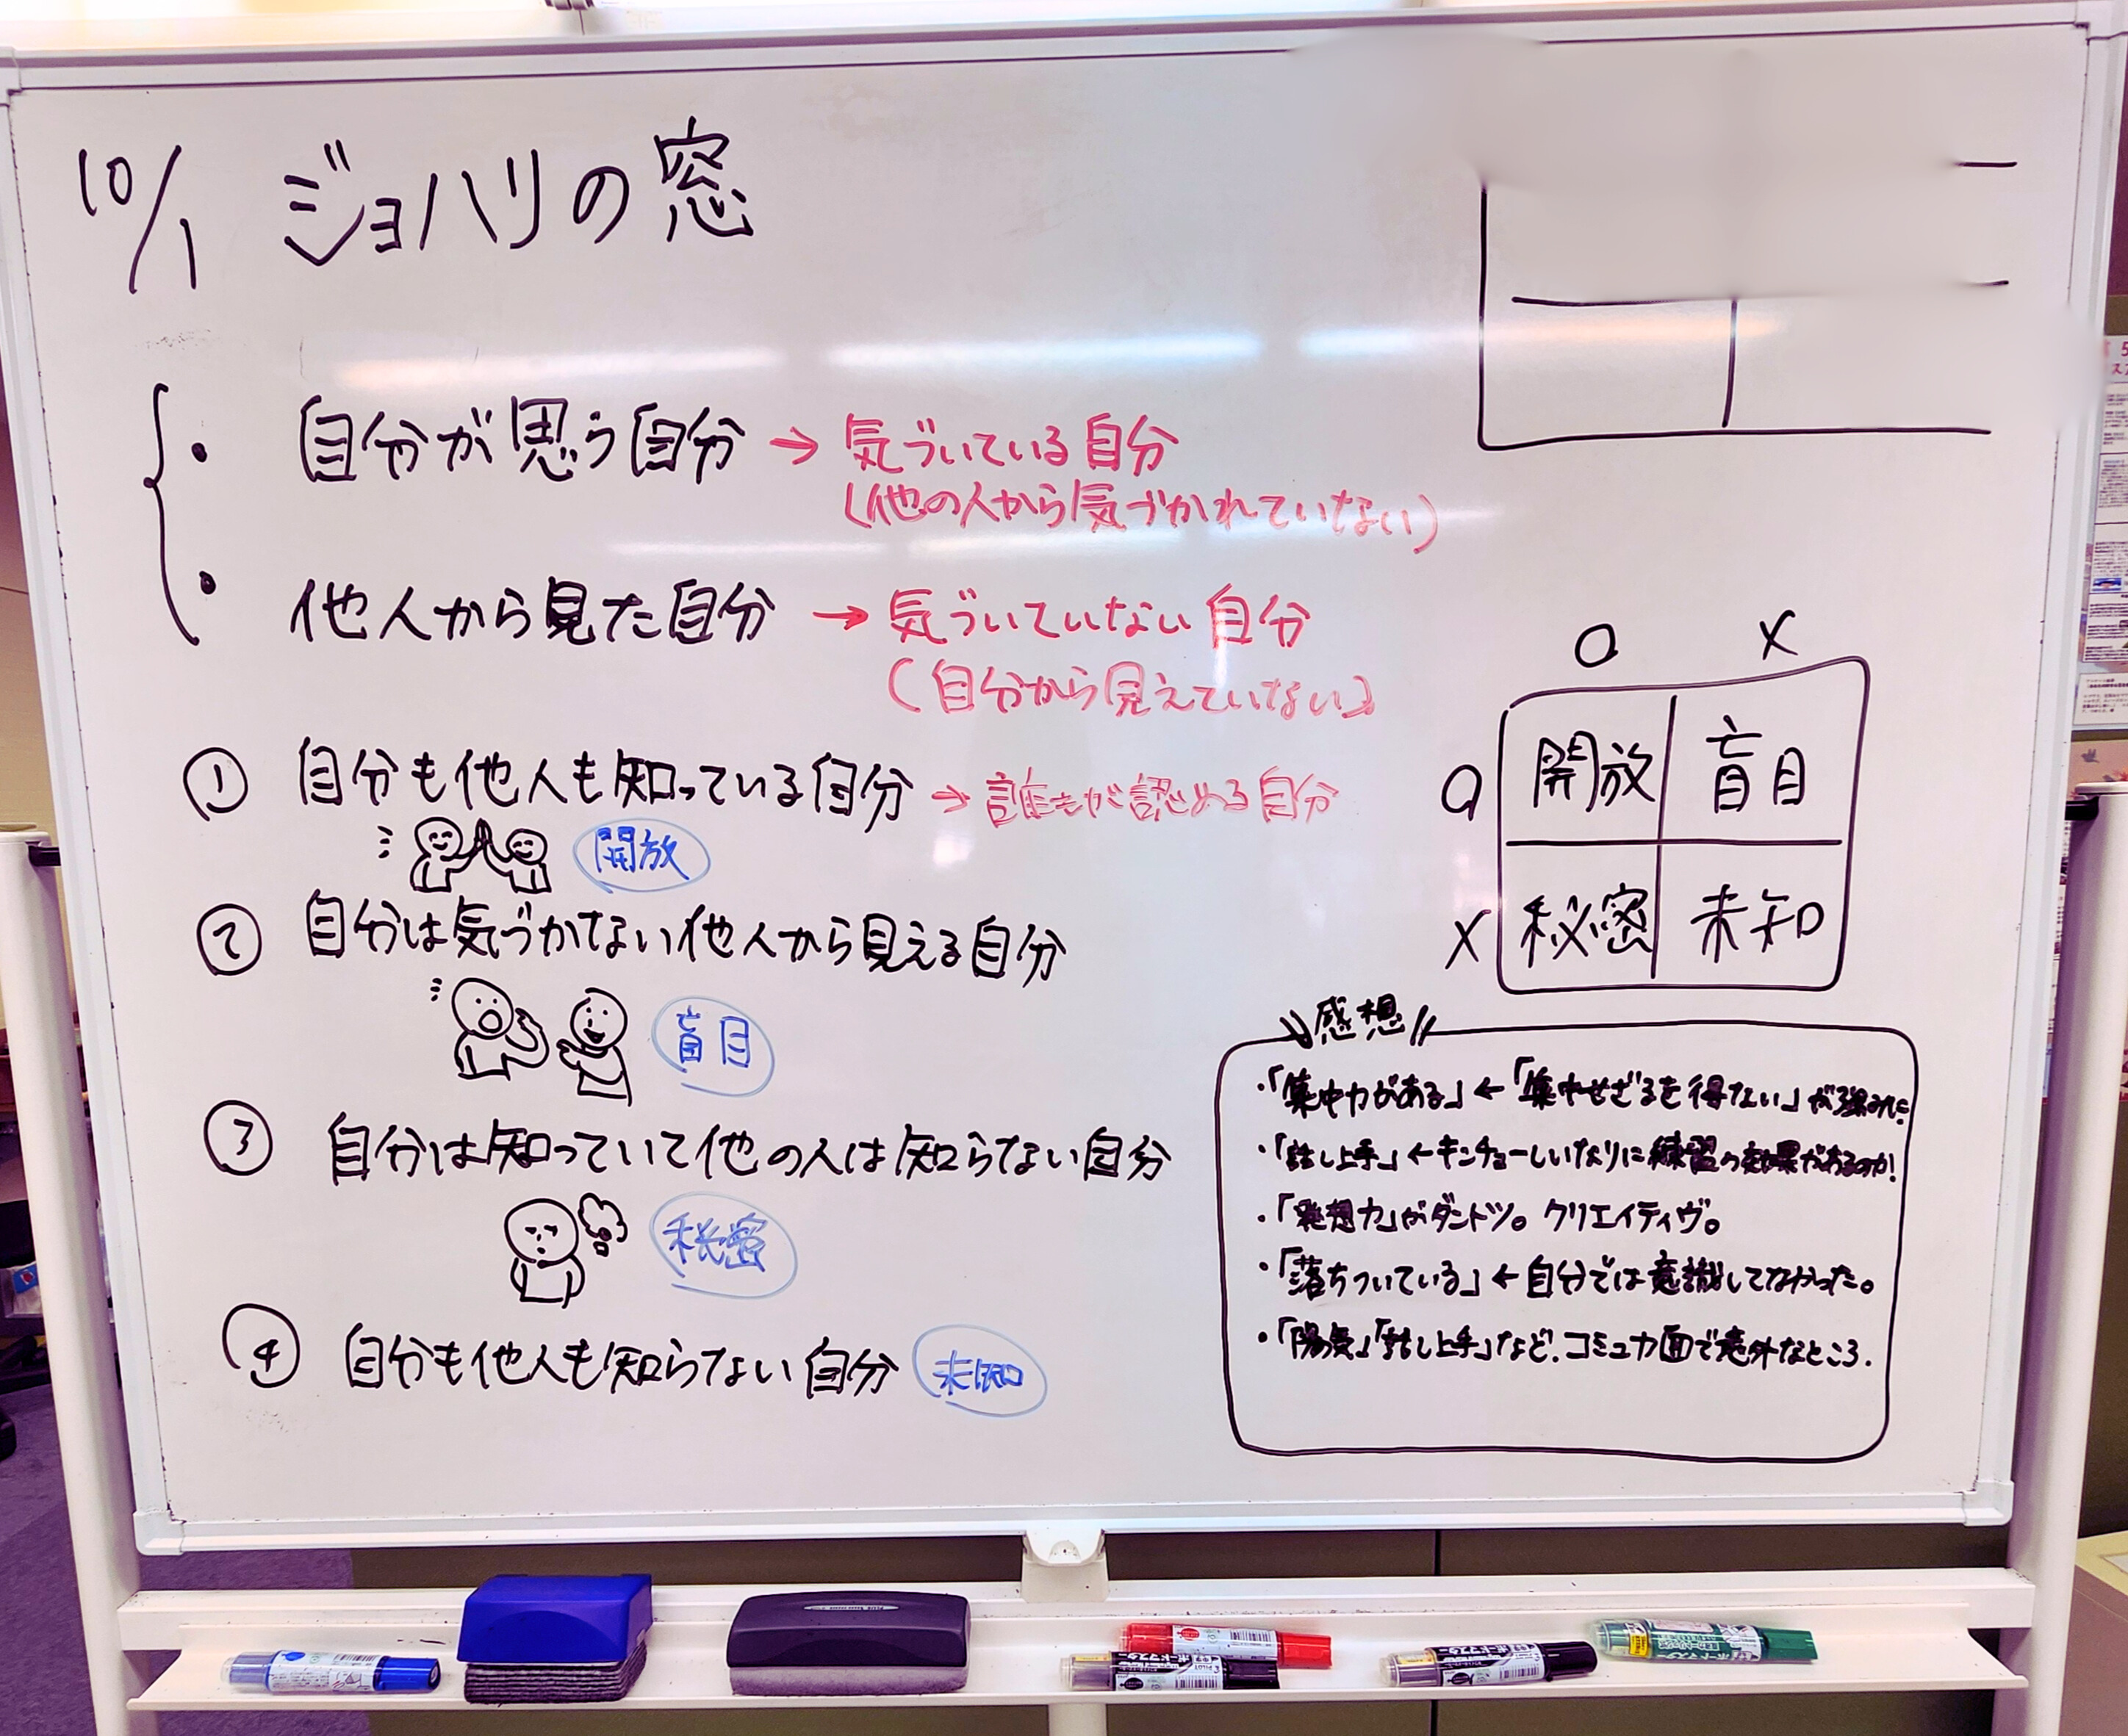 10/1 ジョハリの窓
・自分が思う自分 → 気づいている自分
(他の人から気づかれていない)
・他人から見た自分 → 気づいていない自分
(自分から見えていない)
① 自分も他人も知っている自分 → 誰もが認める自分
開放
② 自分は気づかない他人から見える自分
盲目
③ 自分は知っていて他の人は知らない自分
秘密
④ 自分も他人も知らない自分 未知
○ ×
○ 開放 盲目
× 秘密 未知
感想
・「集中力がある」←「集中せざるを得ない」が強みに
・「話し上手」←キンチョーしいなりに練習の効果があるのか!
・「発想力」がダントツ。クリエイティヴ。
・「落ちついている」←自分では意識してなかった。
・「陽気」「話し上手」など、コミュ力面で意外なところ.